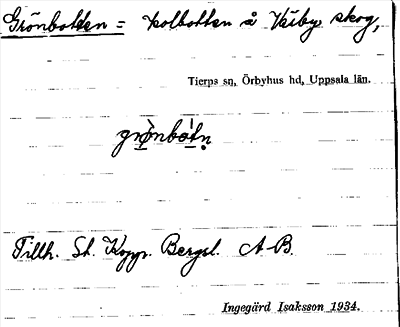 Grönbotten = kolbotten å Väsby skog,
Tierps sn, Örbyhus hd, Uppsala län.
grø̀nbòtn̥
Tillh. St. Kopp. Bergsl. A-B.
Ingegärd Isaksson 1934.